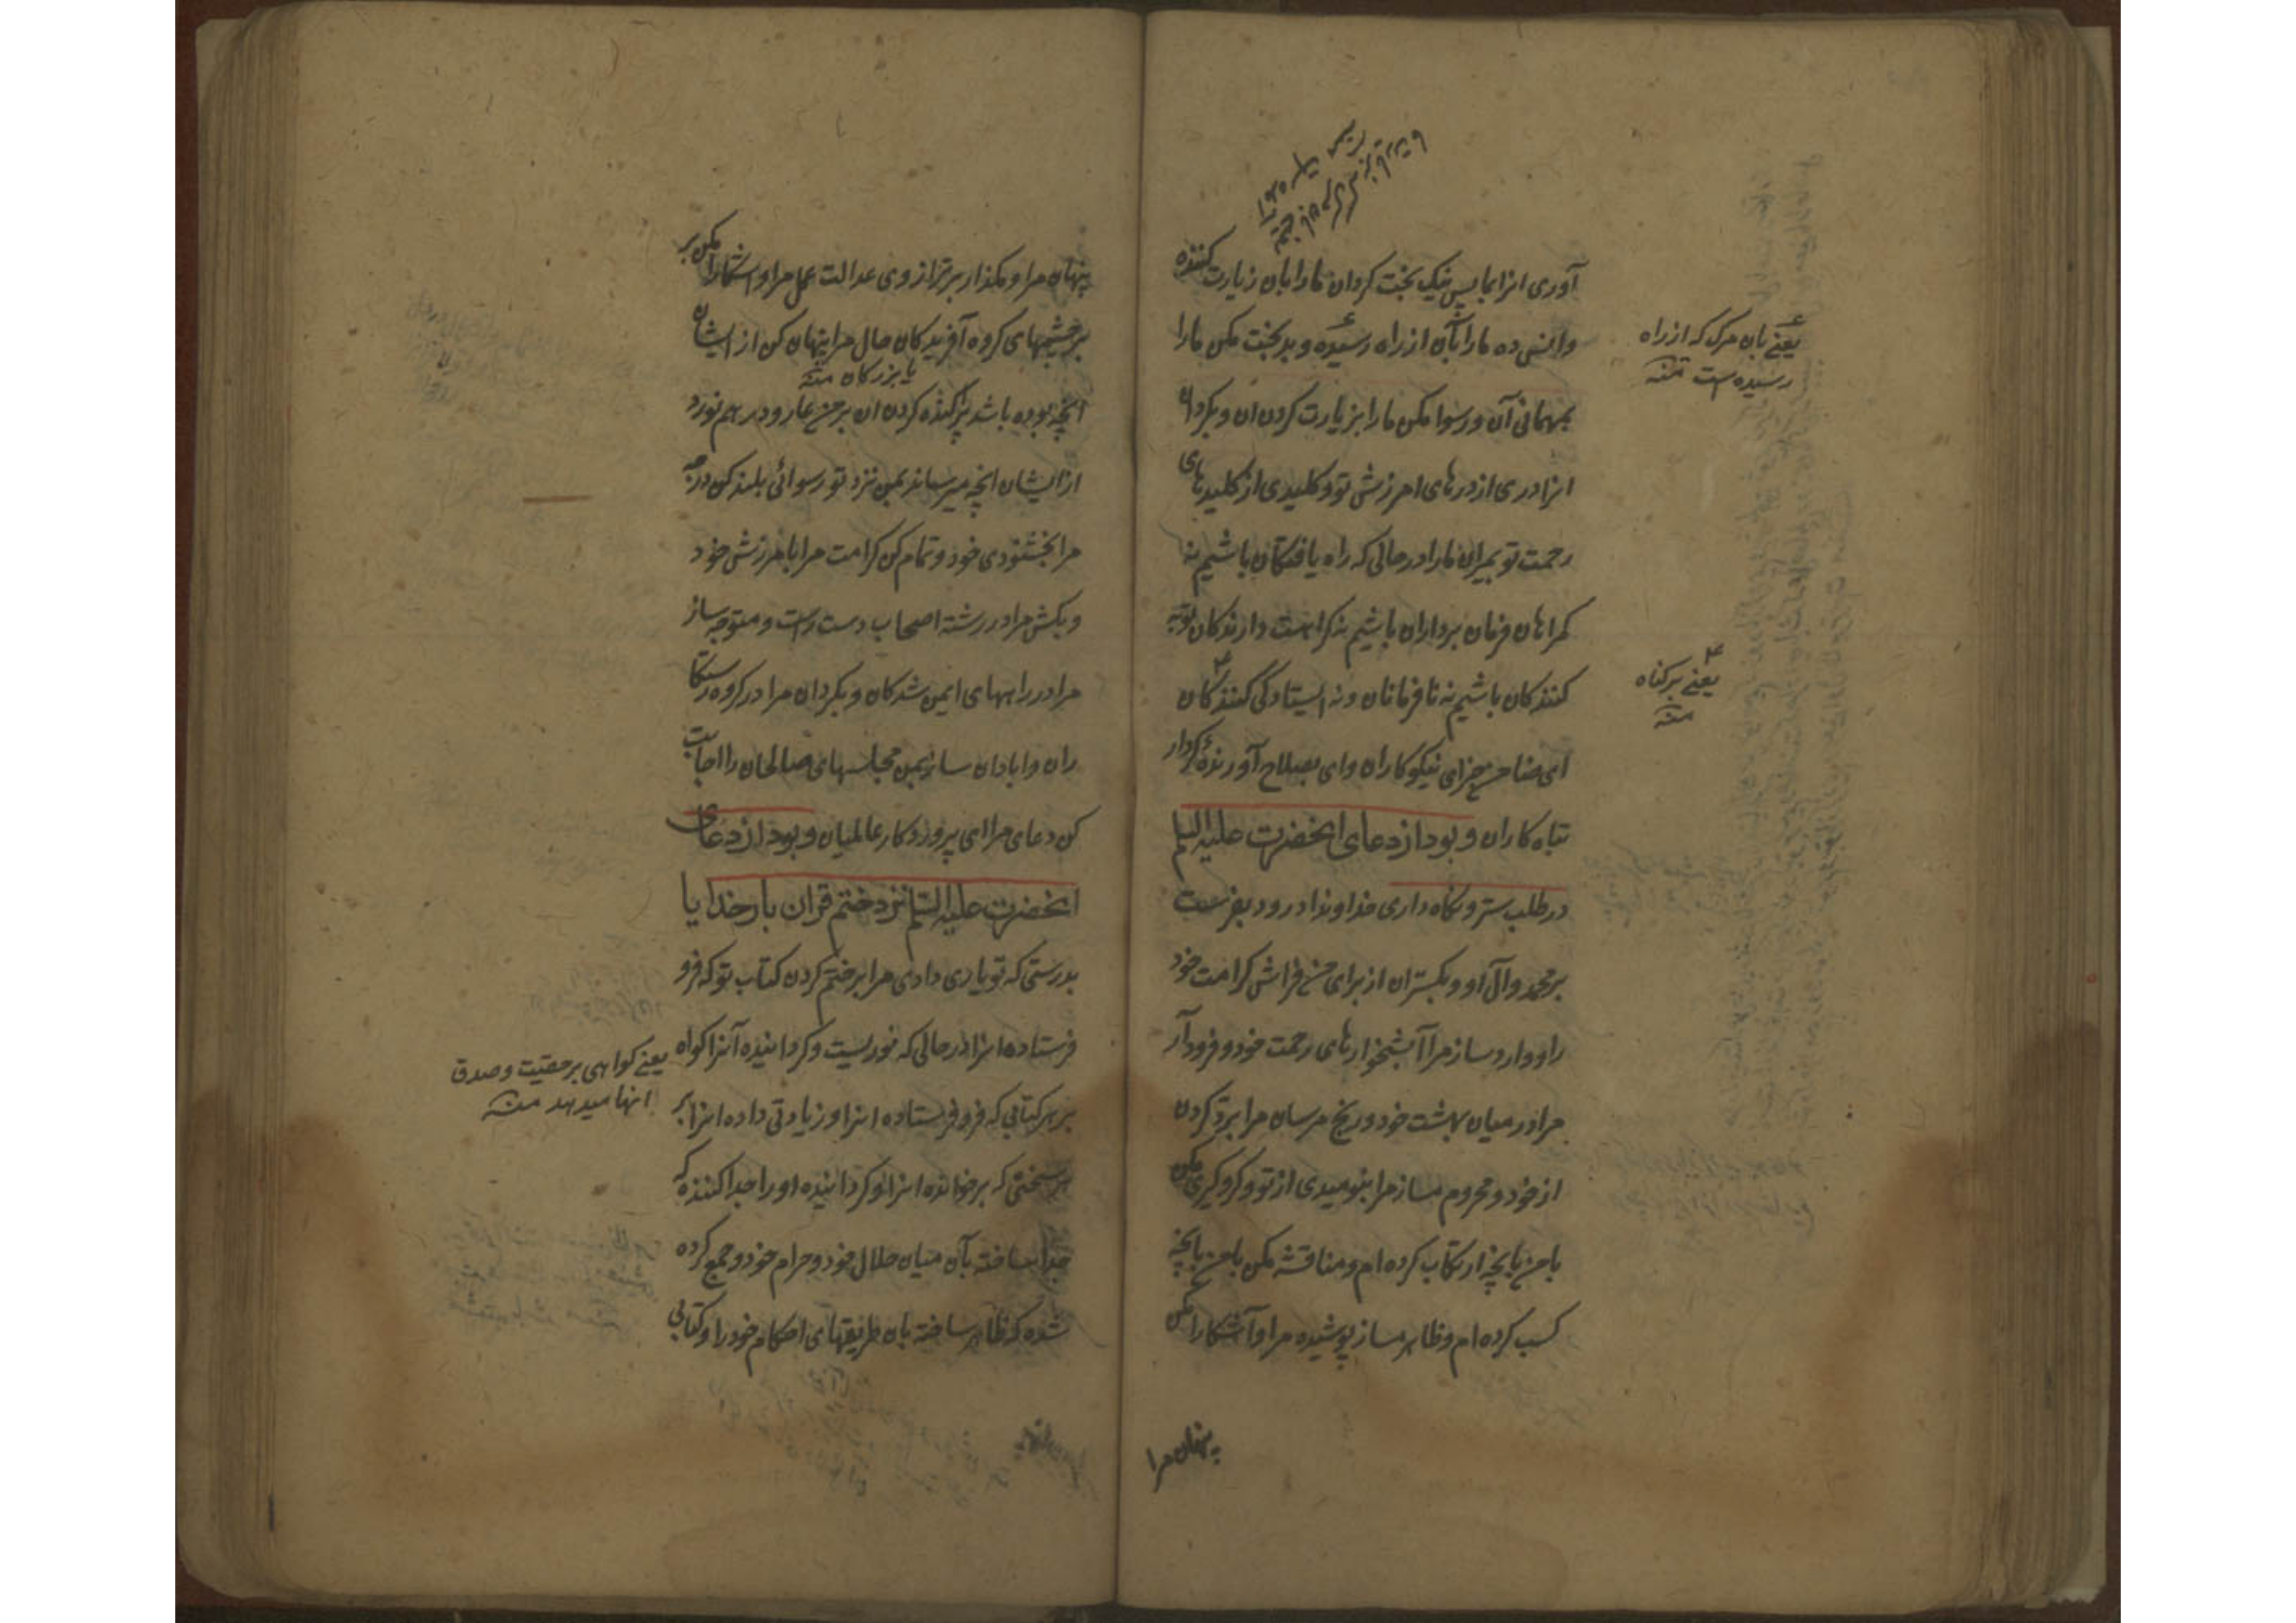 آوری انرا بما پس نیک بخت کردان مارا بان زیارت کننده
وانس ده مارا بآن از راه رسیده و بدبخت مکن مارا
بمهمانی آن و رسوا مکن مارا بزیارت کردن ان و بکردان
انرا دری از درهای امرزش تو و کلیدی از کلیدهای
رحمت تو بمیران مارا در حالی که راه یافتکان باشیم نه
کمراهان فرمان برداران باشیم نه کراهت دارندکان توبه
کنندکان باشیم نه نافرمانان ونه ایستادکی کنندکان
ای ضامن جزای نیکوکاران وای بصلاح آورنده کردار
تباه کاران و بود از دعای انحضرت علیه السلم
در طلب ستر و نکاه داری خداوندا درود بفرست
بر محمد وآل او و بکستران از برای من فراش کرامت خود
را ووارد ساز مرا آبشخوارهای رحمت خود و فرود آر
مرا در میان بهشت خود و رنج مرسان مرا برد کردن
از خود و محروم مساز مرا بنومیدی از تو و کروکیری مکن
با من بانچه ارتکاب کرده ام و مناقشه مکن با من بانچه
کسب کرده ام و ظاهر مساز پوشیده مرا وآشکارا مکن
پنهان مرا
یعنی بان مرک که از راه
رسیده است منه
یعنی بر کناه
منه
پنهان مرا و مکذار بر ترازوی عدالت عمل مرا واشکارا مکن بر
بر چشمهای کروه آفریدکان حال مرا پنهان کن از ایشان
یا بزرکان منه
آنچه بوده باشد پراکنده کردن ان بر من عار و در هم نورد
از ایشان انچه میرساند بمن نزد تو رسوائی بلند کن درجه
مرا بخشنودی خود و تمام کن کرامت مرا بامرزش خود
و بکش مرا در رشته اصحاب دست راست و متوجه ساز
مرا در راههای ایمن شدکان و بکردان مرا در کروه رستکا
ران وابادان ساز بمن مجلسهای صالحان را اجابت
کن دعای مرا ای پروردکار عالمیان و بود از دعای
انحضرت علیه السلم نزد ختم قران بار خدایا
بدرستی که تو یاری دادی مرا بر ختم کردن کتاب تو که فرو
فرستاده انرا در حالی که نوریست و کردانیده آنرا کواه
بر هر کتابی که فرو فرستاده انرا و زیادتی داده انرا بر
هر سخنی که بر خوانده انرا و کردانیده او را جدا کننده که
جدا ساخته بآن میان حلال خود و حرام خود و جمع کرده
شده که ظاهر ساخته بان طریقهای احکام خود را و کتابی
یعنی کواهی بر حقیت و صدق
انها میدهد منه